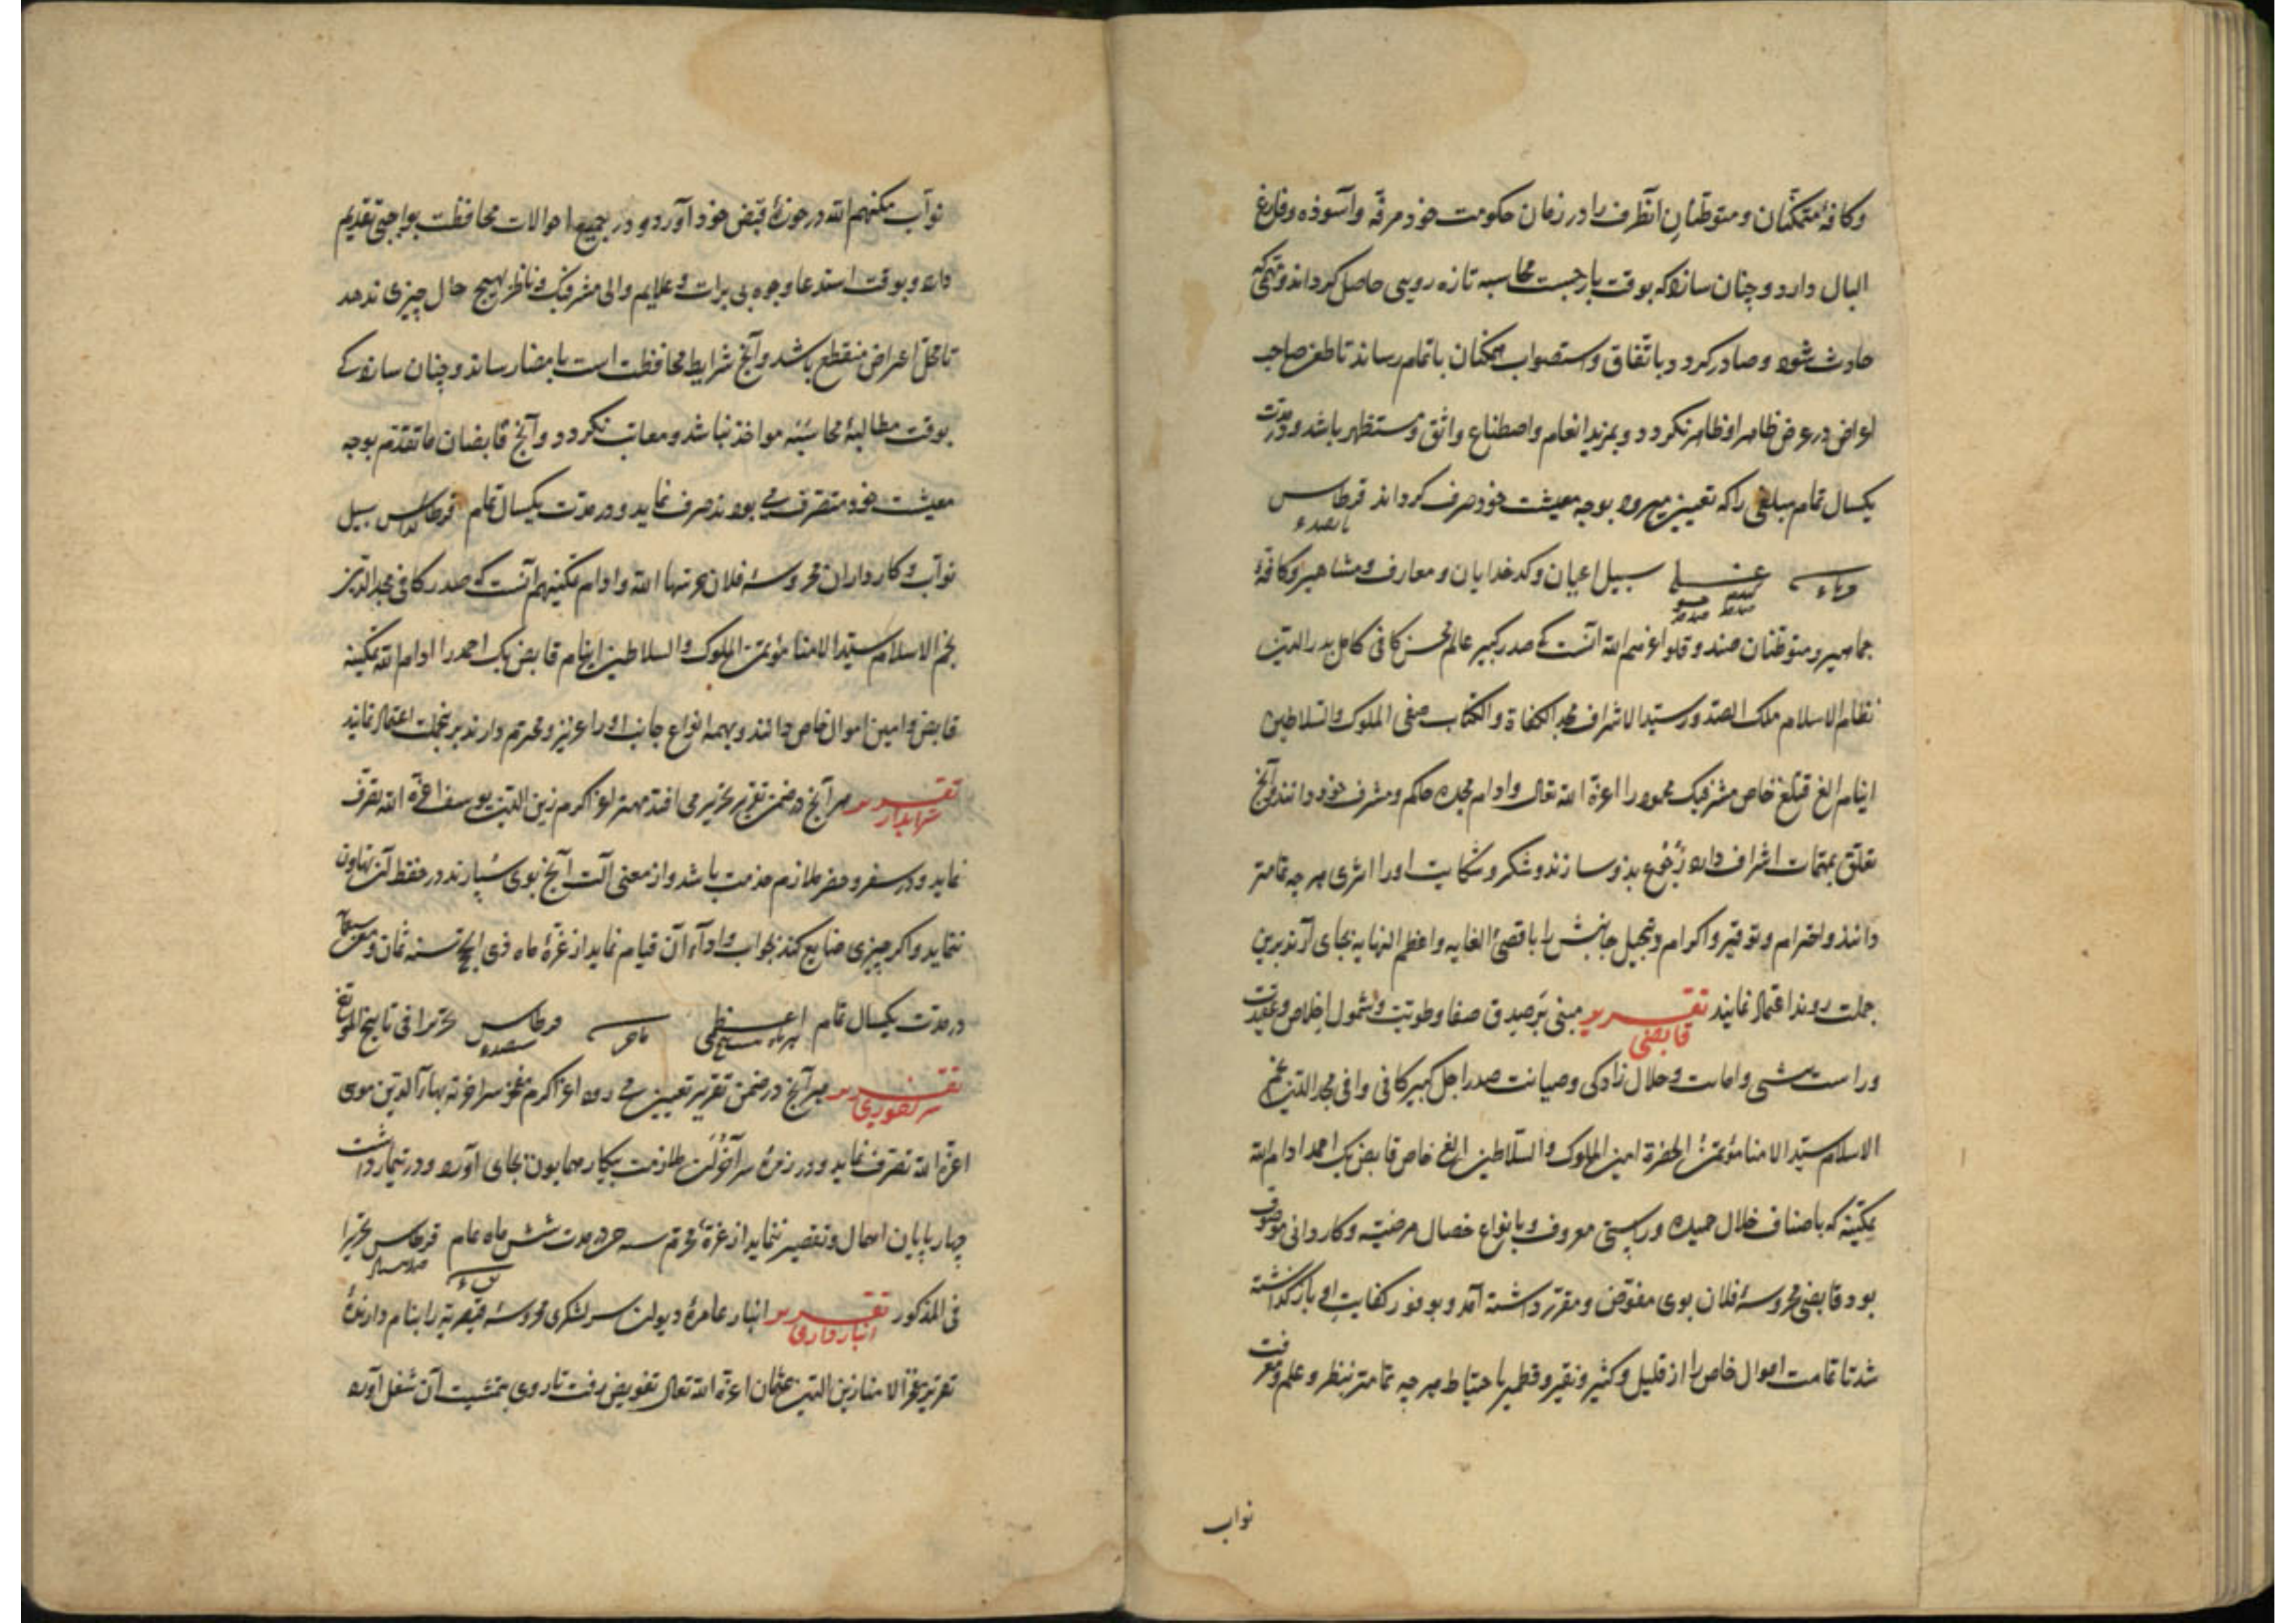 وكافهٔ متمكنان ومتوطنان آنطرف را در زمان حكومت خود مرفّه وآسوذه وفارغ
البال دارد وچنان سازد كه بوقت بازجست محاسبه تازه رويى حاصل كرداند ومهمى كه
حادث شود وصادر كردد باتفاق واستصواب همكنان باتمام رساند تا طعن صاحب
اعراض در عرض ظاهر او ظاهر نكردد وبمزيد انعام واصطناع واثق ومستظهر باشد ودر مدت
يكسال تمام مبلغى را كه تعيين ميرود بوجه معيشت خود صرف كرداند قرطاس
سبيل اعيان وكدخدايان ومعارف ومشاهير وكافهٔ
جماهير ومتوطنان اعزهم الله آنست كه صدر كبير عالم محسن كافى كامل بدرالدين
نظام الاسلام ملك الصدور سيد الاشراف مجد الكفاة والكتاب صفى الملوك والسلاطين
اينانج الغ قتلغ خاص مشرف بك محمود را اعزه الله تعالى وادام مجده حاكم ومشرف خود دانند وآنچ
تعلق بمهمات اشراف دارد رجوع بذو سازند وشكر وشكايت او را اثرى هرچه تمامتر
دانند واحترام وتوقير واكرام وتبجيل جانبش را باقصى الغايه واعظم النهايه بجاى آرند برين
جملت روند اعتماد نمايند تقرير قابضى مبنى بر صدق صفا وطويت وشمول اخلاص وعقيدت
وراست منشى وامانت وحلال زادكى وصيانت صدر اجل كبير كافى وافى مجدالدين نجم
الاسلام سيد الامنا مؤتمن الحضرة امين الملوك والسلاطين الغ خاص قابض بك احمد ادام الله
تمكينه كه باصناف خلال حميده وراستى معروف وبانواع خصال مرضيه وكاردانى موصوف
بود قابضى محروسهٔ فلان بوى مفوض ومقرر داشته آمد وبوفور كفايت او بازكذاشته
شد تا تمامت اموال خاص را از قليل وكثير ونقير وقطمير باحتياط هرچه تمامتر بنظر وعلم ومعرفت
نواب
نواب مكنهم الله در حوزهٔ قبض خود آورد ودر جميع احوالات محافظت بواجبى تقديم
دارد وبوقت استدعا وجوه بى برات وعلايم والى مشرف وناظر بهيچ حال چيزى ندهد
تا محل اعراض منقطع باشد وآنچ شرايط محافظت است بامضا رساند وچنان سازد كى
بوقت مطالبهٔ محاسبه مواخذ نباشد ومعاتب نكردد وآنچ قابضان ما تقدم بوجه
معيشت خود متصرف مى بودند صرف نمايد ودر مدت يكسال تمام قرطاس سبيل
نواب وكارداران محروسهٔ فلان حرسها الله وادام تمكينهم آنست كه صدر كافى مجدالدين
نجم الاسلام سيد الامنا مؤتمن الملوك والسلاطين اينانج قابض بك احمد را ادام الله تمكينه
قابض وامين اموال خاص دانند وبهمه انواع جانب او را عزيز ومحترم دارند برين جملت اعتماد نمايند
تقرير شرابدار هر آنچ در ضمن تقرير تحرير مى افتد مهتر اعز اكرم زين الدين يوسف اعزه الله تصرف
نمايد ودر سفر وحضر ملازم خدمت باشد واز معنى آلت آنچ بوى سپارند در حفظ آن تهاون
ننمايد واكر چيزى ضايع كند بجواب واداء آن قيام نمايد از غرهٔ ماه ذى الحجه سنه ثمان وسبعمائه
در مدت يكسال تمام قرطاس تحريرا فى تاريخ المؤرخ
تقرير هر آنچ در ضمن تقرير تعيين مى رود اعز اكرم بهاءالدين موسى
اعزه الله تصرف نمايد ودر زمرهٔ سرآخوران ملازمت بيكار همايون بجاى آورد ودر تيمار داشت
چهارپايان اهمال وتقصير ننمايد از غرهٔ محرم سنه در مدت شش ماه تمام قرطاس تحريرا
فى المذكور تقرير انباردارى انبار عامرهٔ ديوان سرلشكرى محروسهٔ قيصريه را بنام دارندهٔ
تقرير عز الامنا زين الدين عثمان اعزه الله تعالى تفويض رفت تا روى بتمشيت آن شغل آورد